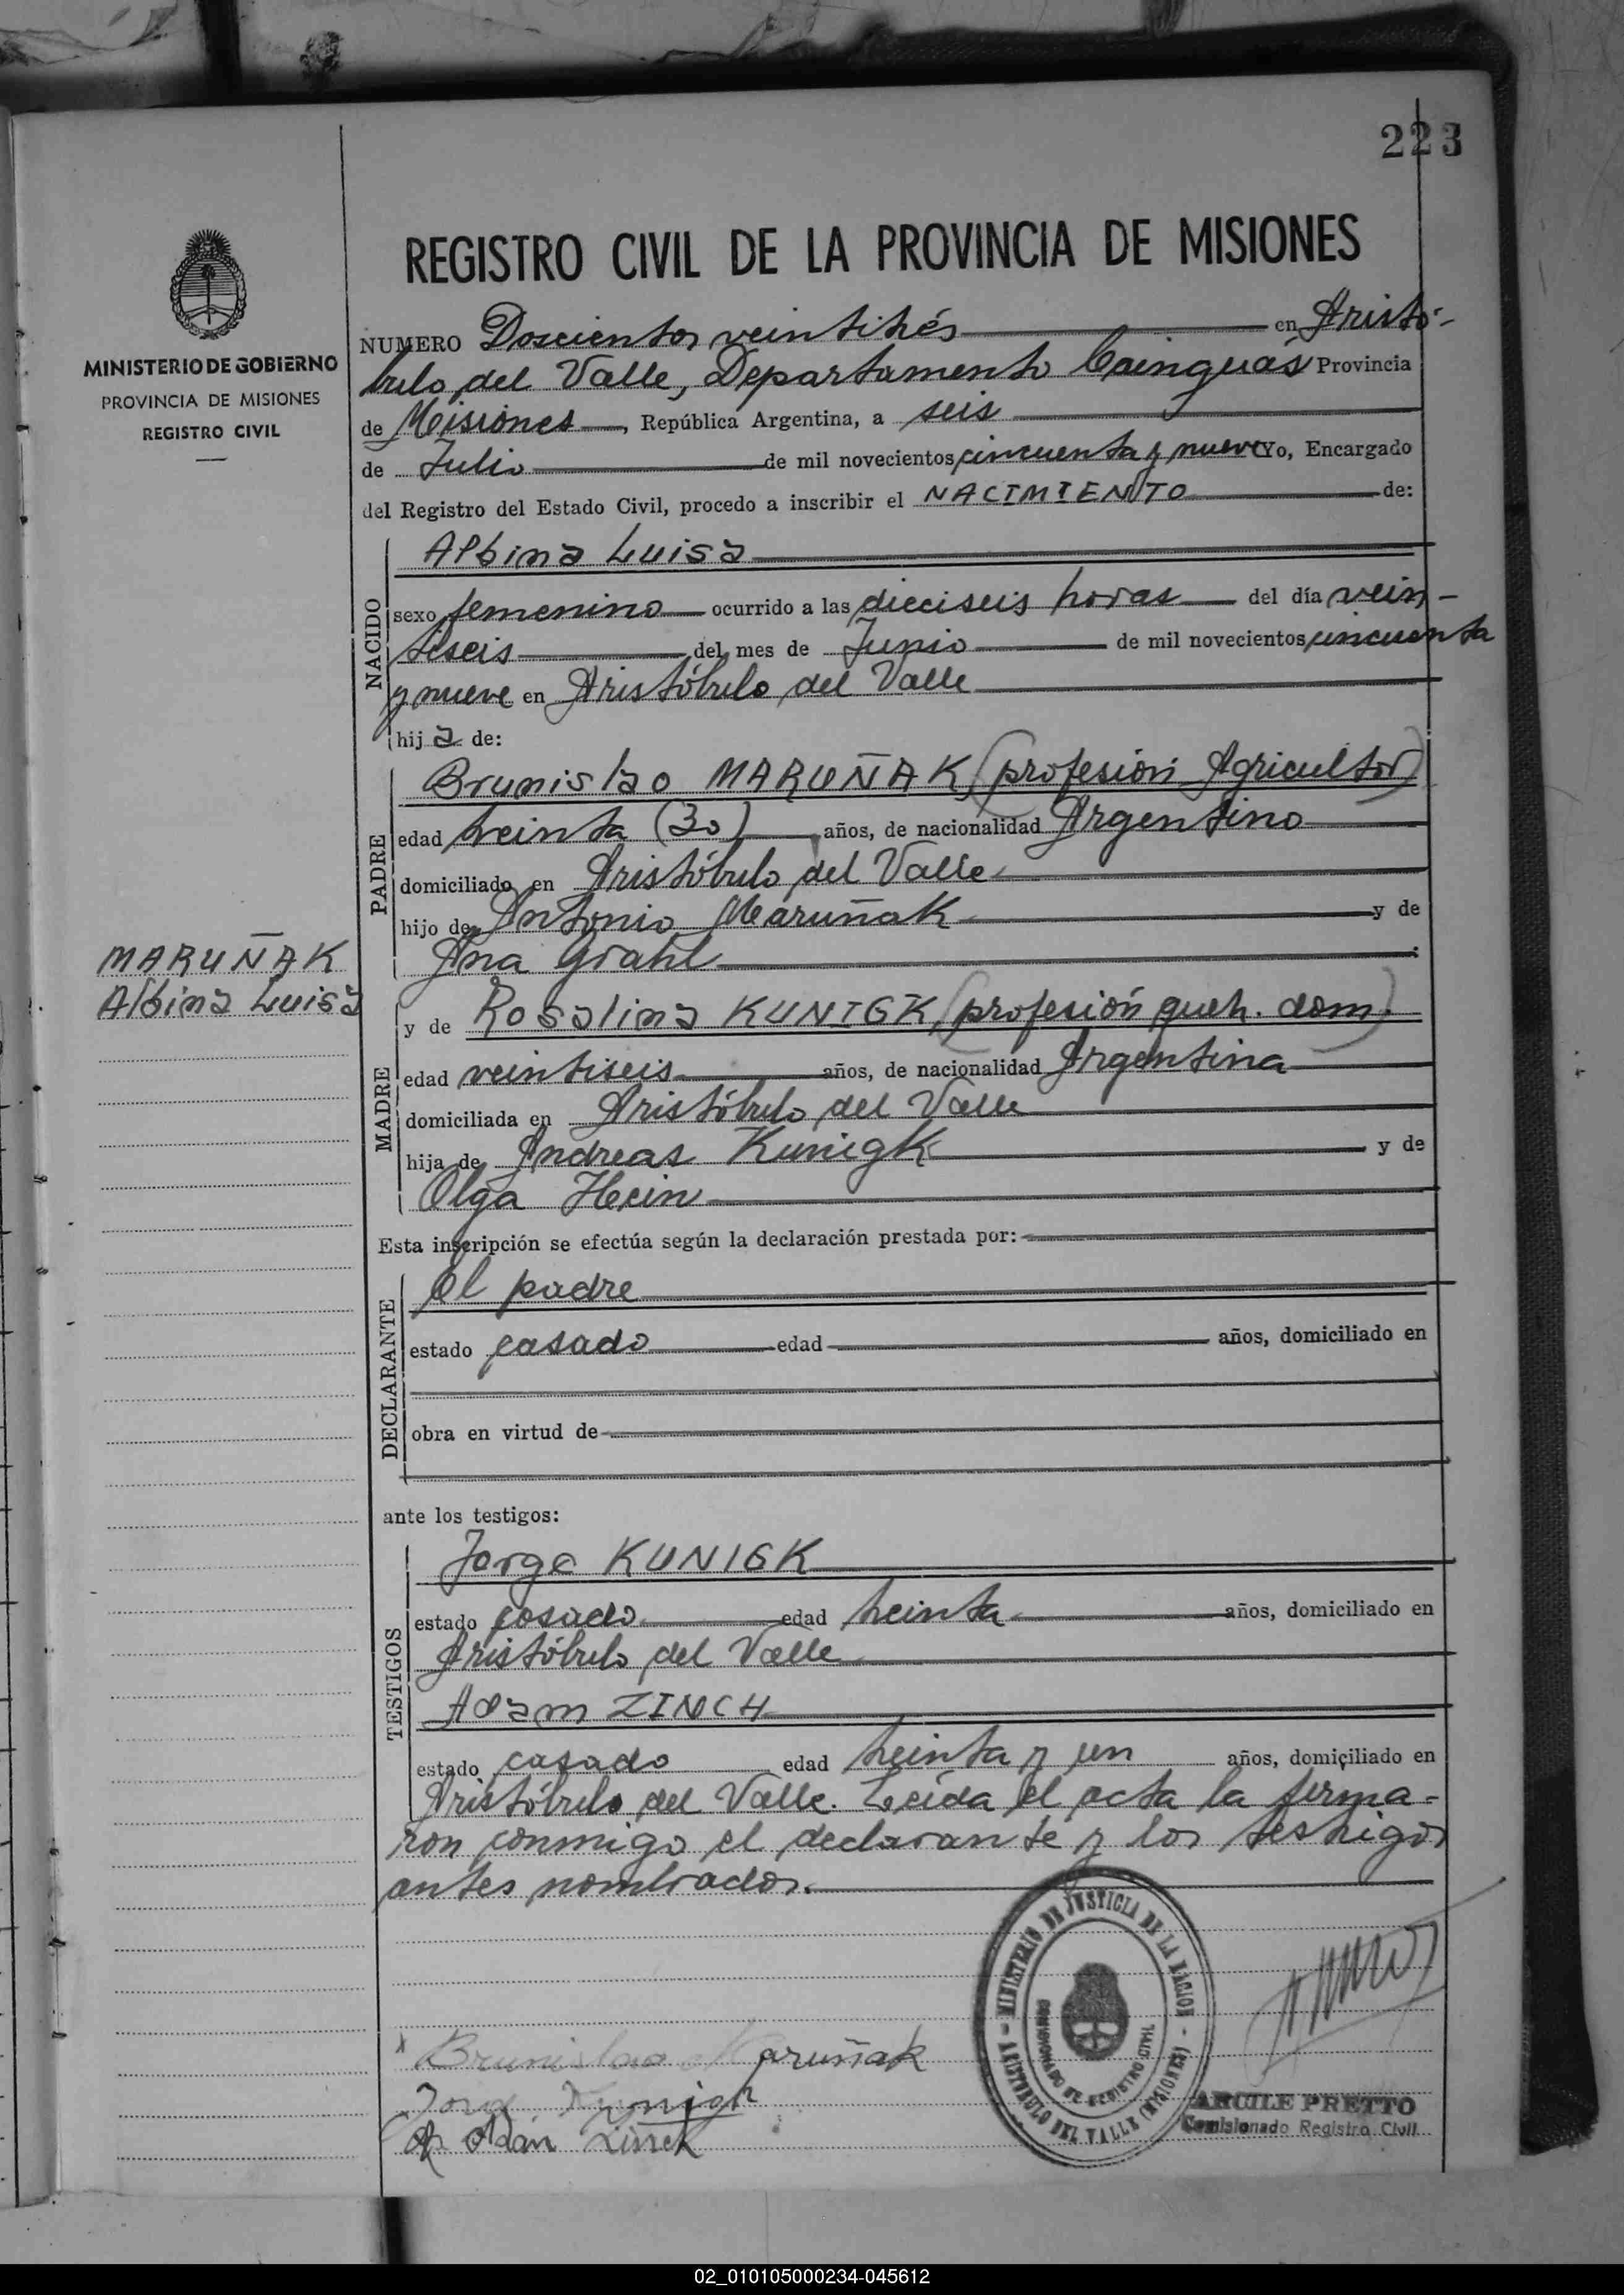 223
MINISTERIO DE GOBIERNO
PROVINCIA DE MISIONES
REGISTRO CIVIL
REGISTRO CIVIL DE LA PROVINCIA DE MISIONES
NUMERO Doscientos veintitrés en Aristó-
bulo del Valle, Departamento Cainguás Provincia
de Misiones, República Argentina, a seis
de Julio de mil novecientos cincuenta y nueve Yo, Encargado
del Registro del Estado Civil, procedo a inscribir el NACIMIENTO de:
NACIDO
Albina Luisa
sexo femenino ocurrido a las dieciseis horas del día vein-
tiseis del mes de Junio de mil novecientos cincuenta
y nueve en Aristóbulo del Valle
hija de:
PADRE
Brunislao MARUÑAK, (profesión Agricultor)
edad treinta (30) años, de nacionalidad Argentino
domiciliado en Aristóbulo del Valle
hijo de Antonio Maruñak y de
Ana Grahl
MARUÑAK
Albina Luisa
MADRE
y de Rosalina KUNIGK, (profesión queh. dom.)
edad veintiseis años, de nacionalidad Argentina
domiciliada en Aristóbulo del Valle
hija de Andreas Kunigk y de
Olga Hein
Esta inscripción se efectúa según la declaración prestada por:
DECLARANTE
El padre
estado casado edad años, domiciliado en
obra en virtud de
ante los testigos:
TESTIGOS
Jorge KUNIGK
estado casado edad treinta años, domiciliado en
Aristóbulo del Valle
Adam ZINCH
estado casado edad treinta y un años, domiciliado en
Aristóbulo del Valle. Leída el acta la firma-
ron conmigo el declarante y los testigos
antes nombrados.
MINISTERIO DE JUSTICIA DE LA NACION
COMISIONADO DE REGISTRO CIVIL
ARISTOBULO DEL VALLE (MISIONES)
Brunislao Maruñak
ARCILE PRETTO
Comisionado Registro Civil
02_010105000234-045612